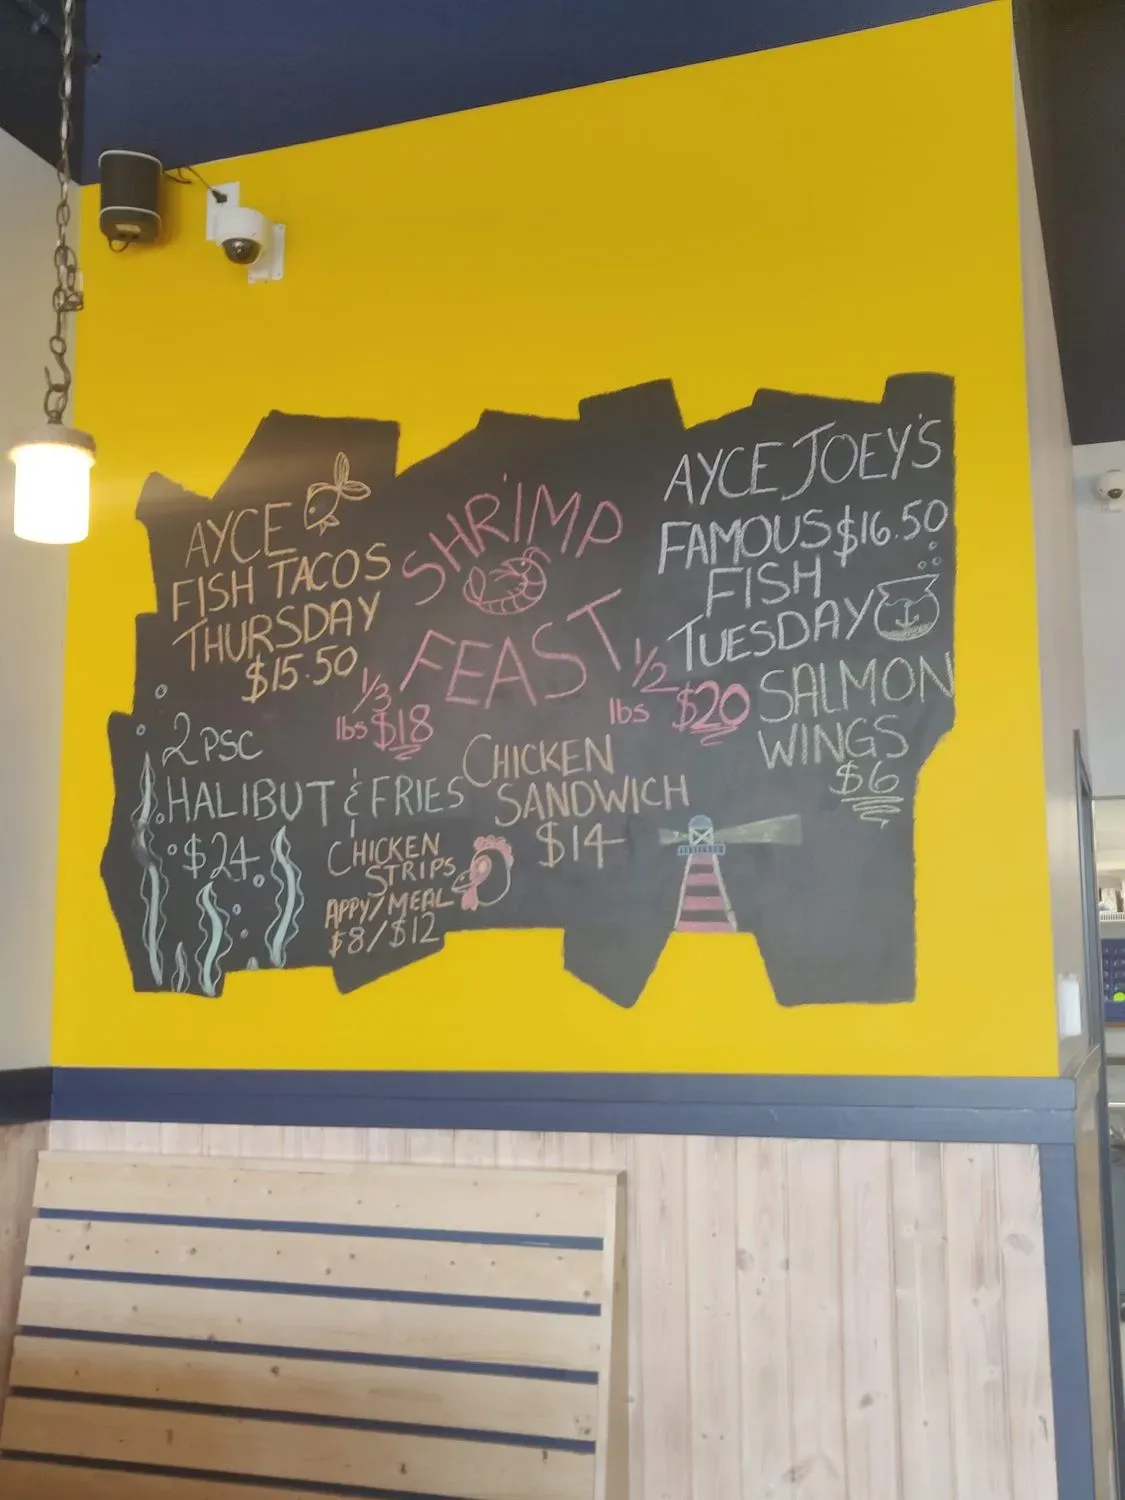 AYCE
FISH TACOS
THURSDAY
$15.50
SHRIMP
FEAST
1/3
lbs $18
1/2
lbs $20
AYCE JOEY'S
FAMOUS $16.50
FISH
TUESDAY
SALMON
WINGS
$6
2 PSC
HALIBUT & FRIES
$24
CHICKEN
STRIPS
APPY/MEAL
$8/$12
CHICKEN
SANDWICH
$14